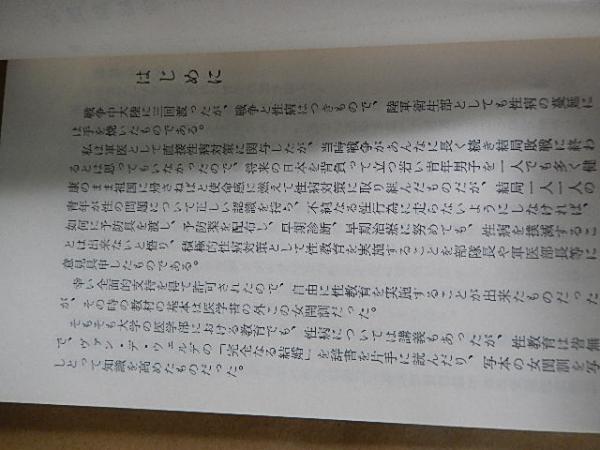 はじめに
戦争中大陸に三回渡ったが、戦争と性病はつきもので、陸軍衛生部としても性病の蔓延に
は手を焼いたものである。
私は軍医として直接性病対策に関与したが、当時戦争があんなに長く続き結局敗戦に終わ
るとは思ってもいなかったので、将来の日本を背負って立つ若い青年男子を一人でも多く健
康のまま祖国に戻さねばと使命感に燃えて性病対策に取り組んだものだが、結局一人一人の
青年が性の問題について正しい認識を持ち、不純なる性行為に走らないようにしなければ、
如何に予防具を渡し、予防薬を配布し、早期診断、早期治療に努めても、性病を撲滅するこ
とは出来ないと悟り、積極的性病対策として性教育を実施することを部隊長や軍医部長等に
意見具申したものである。
幸い全面的支持を得て許可されたので、自由に性教育を実施することが出来たものだった
が、その時の教材の基本は医学書の外この女閨訓だった。
そもそも大学の医学部における教育でも、性病については講義もあったが、性教育は皆無
で、ヴァン・デ・ヴェルデの「完全なる結婚」を辞書を片手に読んだり、写本の女閨訓を写
しとって知識を高めたものだった。